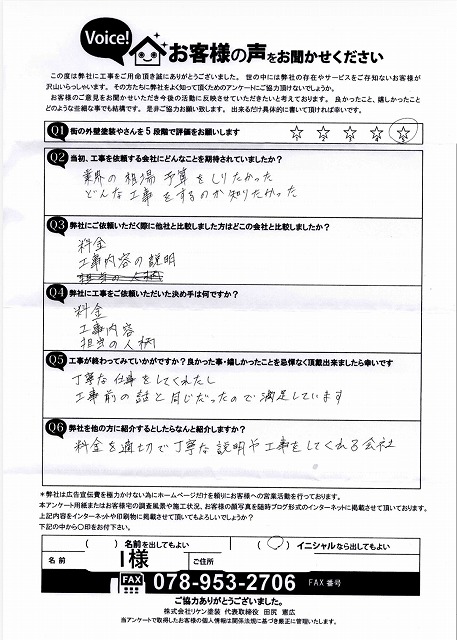 Voice!
お客様の声をお聞かせください
この度は弊社に工事をご用命頂き誠にありがとうございました。世の中には弊社の存在やサービスをご存知ないお客様が
沢山いらっしゃいます。その方たちに弊社をよく知って頂くためのアンケートにご協力頂けないでしょうか。
お客様のご意見をお聞かせいただき今後の活動に反映させていただきたいと考えております。良かったこと、嬉しかったこと
どのような些細な事でも結構です。是非ご協力お願い致します。出来るだけ具体的に書いて頂ければ幸いです。
Q1 街の外壁塗装やさんを5段階で評価をお願いします
Q2 当初、工事を依頼する会社にどんなことを期待されていましたか?
業界の相場 予算をしりたかった
どんな工事をするのか知りたかった
Q3 弊社にご依頼いただく際に他社と比較しました方はどこの会社と比較しましたか?
料金
工事内容の説明
担当の人柄
Q4 弊社に工事をご依頼いただいた決め手は何ですか?
料金
工事内容
担当の人柄
Q5 工事が終わってみていかがですか?良かった事・嬉しかったことを忌憚なく頂戴出来ましたら幸いです
丁寧な仕事をしてくれたし
工事前の話と同じだったので満足しています
Q6 弊社を他の方に紹介するとしたらなんと紹介しますか?
料金を適切で丁寧な説明や工事をしてくれる会社
*弊社は広告宣伝費を極力かけない為にホームページだけを頼りにお客様への営業活動を行っております。
本アンケート用紙またはお客様宅の調査風景や施工状況、お客様の顔写真を随時ブログ形式のインターネットに掲載させて頂いております。
上記内容をインターネットや印刷物に掲載させて頂いてもよろしいでしょうか?
下記の中から○印をお付下さい。
( ) 名前を出してもよい
(○) イニシャルなら出してもよい
名前 I様 ご住所
FAX 078-953-2706 FAX番号
ご協力ありがとうございました。
株式会社リケン塗装 代表取締役 田尻 憲広
当アンケートで取得したお客様の個人情報は関係法規に基づき厳正に管理いたします。